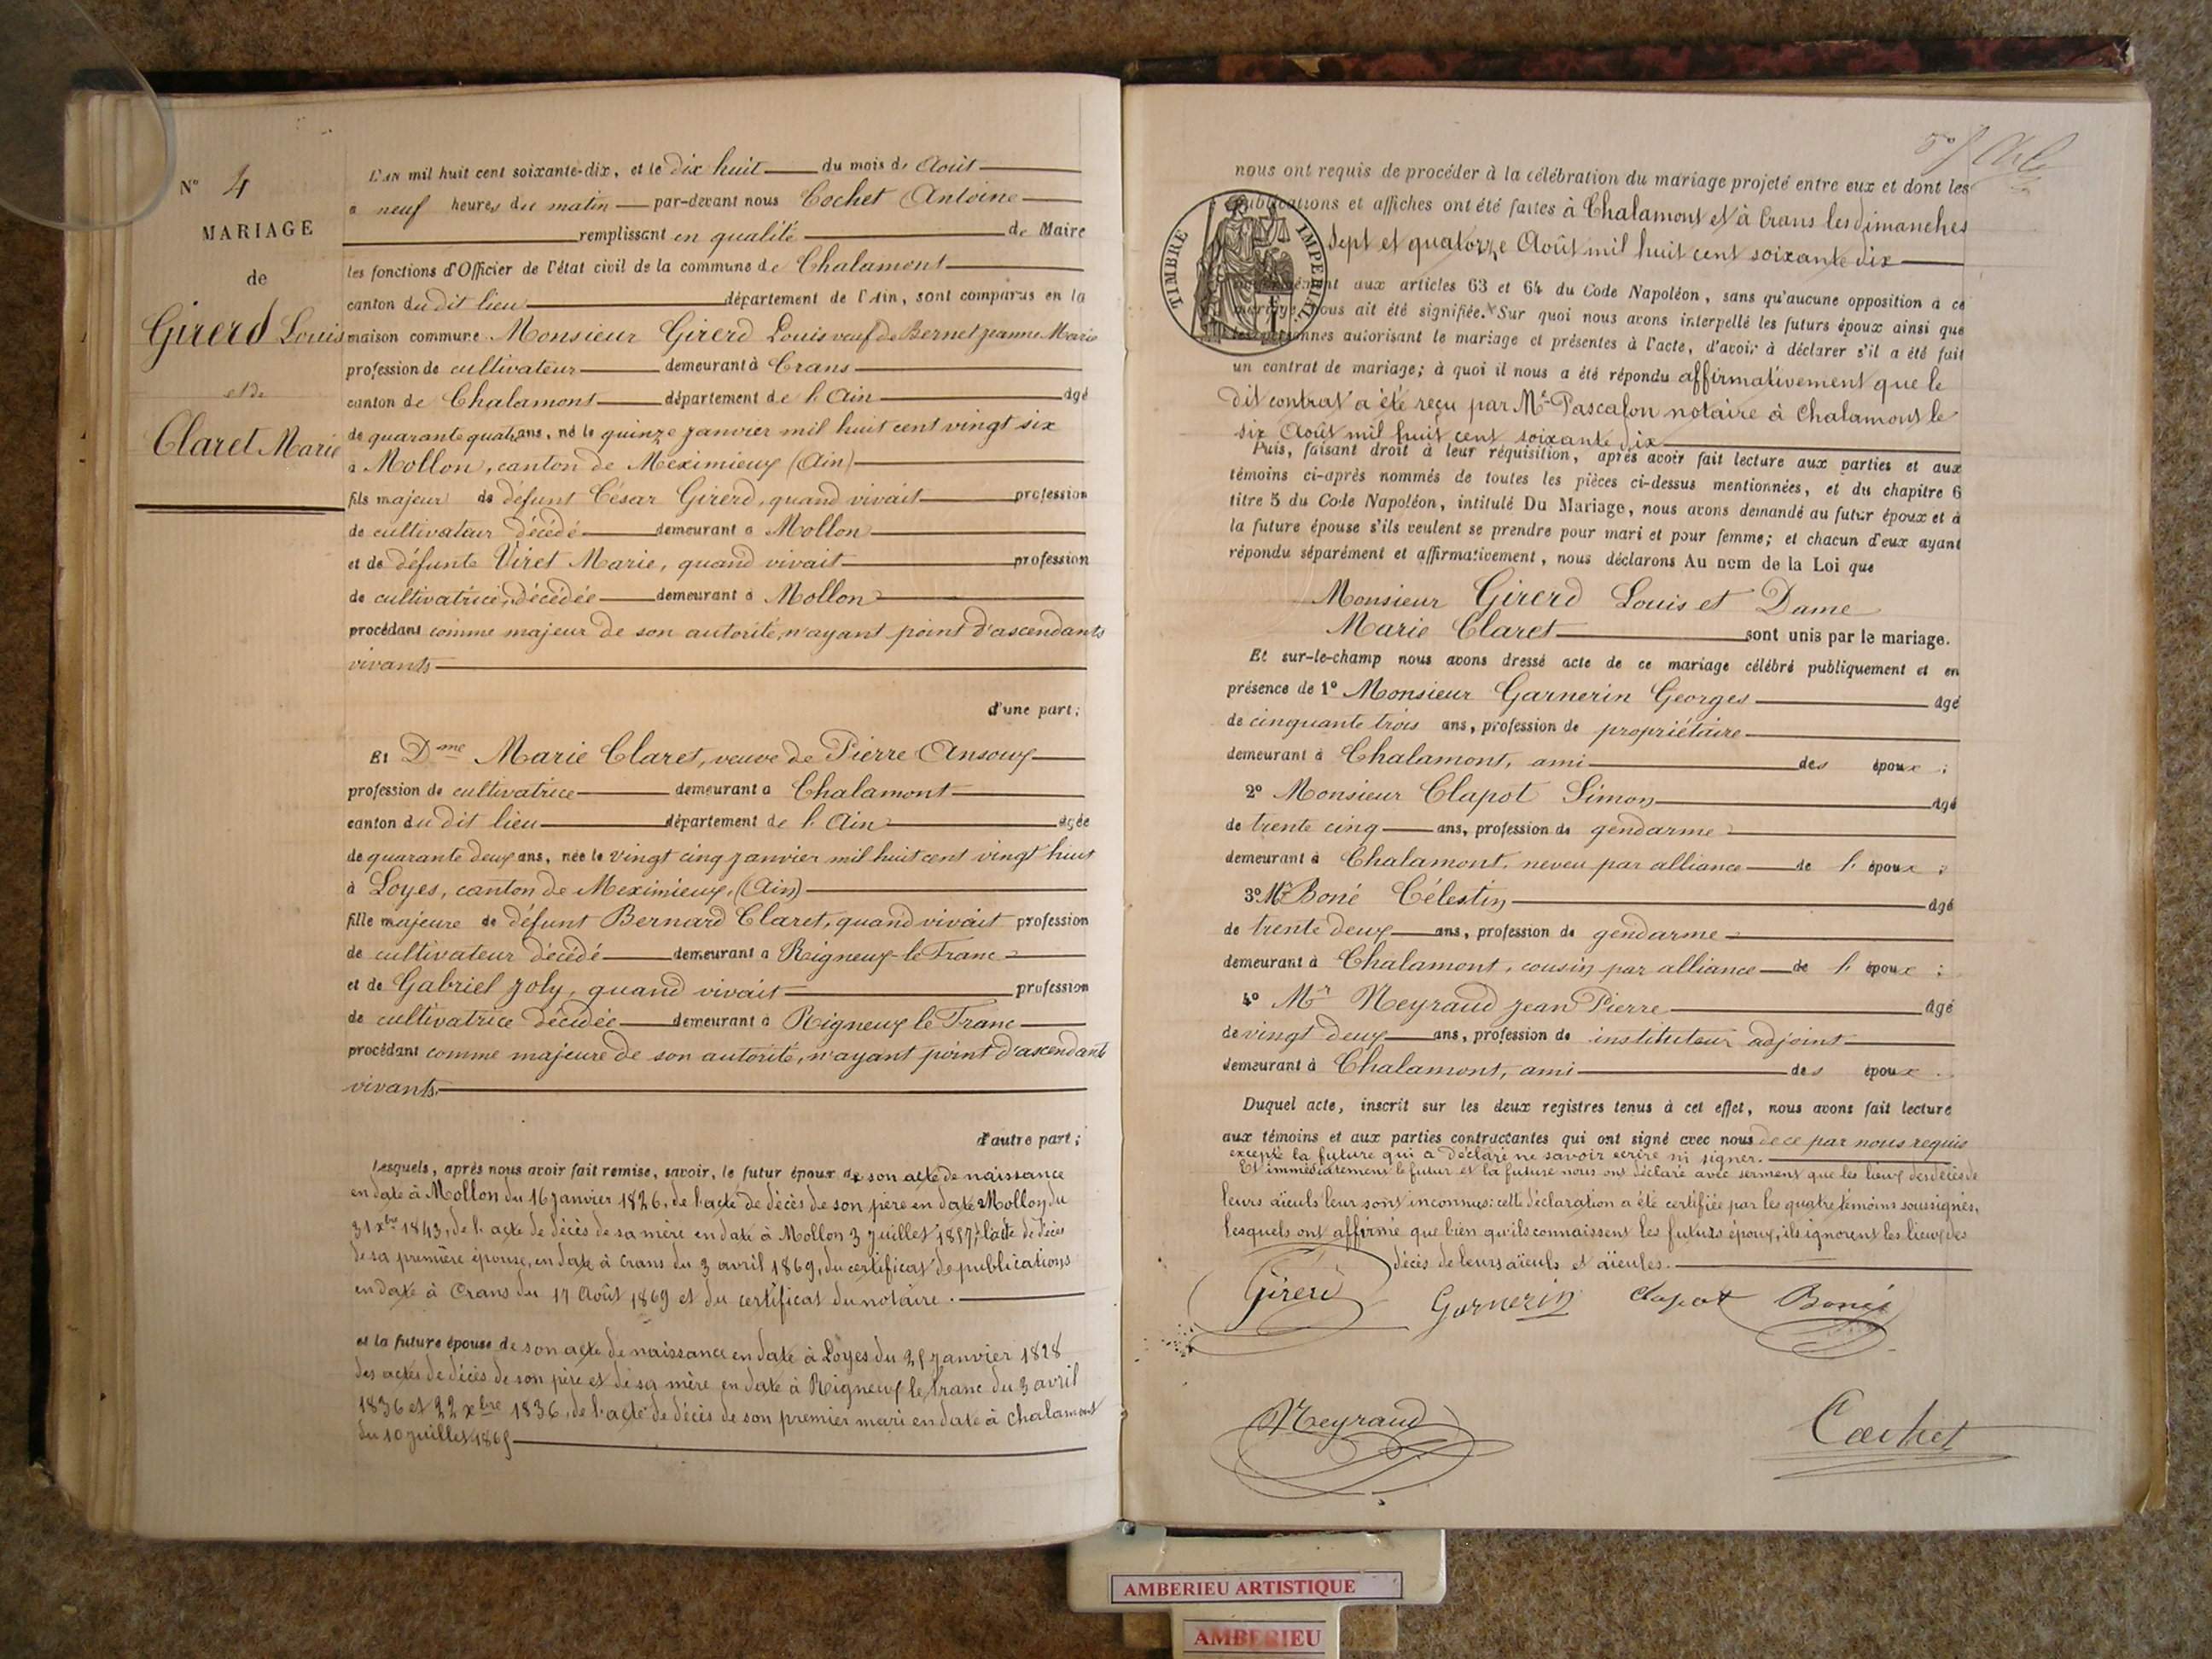 N° 4
MARIAGE
de
Girerd Louis
et de
Claret Marie
L'AN mil huit cent soixante-dix, et le dix huit du mois de Août
a neuf heures du matin par-devant nous Cochet Antoine
remplissant en qualité de Maire
les fonctions d'Officier de l'état civil de la commune de Chalamont
canton du dit lieu département de l'Ain, sont comparus en la
maison commune Monsieur Girerd Louis veuf de Bernet Jeanne Marie
profession de cultivateur demeurant à Crans
canton de Chalamont département de l'Ain âgé
de quarante quatre ans, né le quinze janvier mil huit cent vingt six
à Mollon, canton de Meximieux (Ain)
fils majeur de défunt César Girerd, quand vivait profession
de cultivateur décédé demeurant à Mollon
et de défunte Viret Marie, quand vivait profession
de cultivatrice, décédée demeurant à Mollon
procédant comme majeur de son autorité, n'ayant point d'ascendants
vivants
d'une part;
Et Dme Marie Claret, veuve de Pierre Ansoux
profession de cultivatrice demeurant à Chalamont
canton du dit lieu département de l'Ain âgée
de quarante deux ans, née le vingt cinq janvier mil huit cent vingt huit
à Loyes, canton de Meximieux, (Ain)
fille majeure de défunt Bernard Claret, quand vivait profession
de cultivateur décédé demeurant à Rigneux-le-Franc
et de Gabriel Joly, quand vivait profession
de cultivatrice décédée demeurant à Rigneux le Franc
procédant comme majeure de son autorité, n'ayant point d'ascendants
vivants.
d'autre part;
Lesquels, après nous avoir fait remise, savoir, le futur époux de son acte de naissance
en date à Mollon du 16 janvier 1826, de l'acte de décès de son père en date à Mollon du
31 xbre 1843, de l'acte de décès de sa mère en date à Mollon 3 juillet 1857, l'acte de décès
de sa première épouse, en date à Crans du 3 avril 1869, du certificat de publications
en date à Crans du 17 Août 1869 et du certificat du notaire.
et la future épouse de son acte de naissance en date à Loyes du 25 janvier 1828
des actes de décès de son père et de sa mère en date à Rigneux le franc du 3 avril
1836 et 22 xbre 1836, de l'acte de décès de son premier mari en date à Chalamont
du 10 juillet 1865
nous ont requis de procéder à la célébration du mariage projeté entre eux et dont les
publications et affiches ont été faites à Chalamont et à Crans les dimanches
sept et quatorze Août mil huit cent soixante dix
TIMBRE IMPERIAL
aux articles 63 et 64 du Code Napoléon, sans qu'aucune opposition à ce
mariage nous ait été signifiée. Sur quoi nous avons interpellé les futurs époux ainsi que
les personnes autorisant le mariage et présentes à l'acte, d'avoir à déclarer s'il a été fait
un contrat de mariage; à quoi il nous a été répondu affirmativement que le
dit contrat a été reçu par Me Pascalon notaire à Chalamont le
six Août mil huit cent soixante dix
Puis, faisant droit à leur réquisition, après avoir fait lecture aux parties et aux
témoins ci-après nommés de toutes les pièces ci-dessus mentionnées, et du chapitre 6
titre 5 du Code Napoléon, intitulé Du Mariage, nous avons demandé au futur époux et à
la future épouse s'ils veulent se prendre pour mari et pour femme; et chacun d'eux ayant
répondu séparément et affirmativement, nous déclarons Au nom de la Loi que
Monsieur Girerd Louis et Dame
Marie Claret sont unis par le mariage.
Et sur-le-champ nous avons dressé acte de ce mariage célébré publiquement et en
présence de 1° Monsieur Garnerin Georges âgé
de cinquante trois ans, profession de propriétaire
demeurant à Chalamont, ami des époux;
2° Monsieur Clapot Simon âgé
de trente cinq ans, profession de gendarme
demeurant à Chalamont, neveu par alliance de l'époux;
3° Mr Boné Célestin âgé
de trente deux ans, profession de gendarme
demeurant à Chalamont, cousin par alliance de l'époux;
4° Mr Neyraud Jean Pierre âgé
de vingt deux ans, profession de instituteur adjoint
demeurant à Chalamont, ami des époux.
Duquel acte, inscrit sur les deux registres tenus à cet effet, nous avons fait lecture
aux témoins et aux parties contractantes qui ont signé avec nous de ce par nous requis
excepté la future qui a déclaré ne savoir écrire ni signer.
Et immédiatement le futur et la future nous ont déclaré avec serment que les lieux des décès de
leurs aïeuls leur sont inconnus: cette déclaration a été certifiée par les quatre témoins soussignés,
lesquels ont affirmé que bien qu'ils connaissent les futurs époux, ils ignorent les lieux des
décès de leurs aïeuls et aïeules.
Girerd Garnerin Clapot Boné
Neyraud Cochet
AMBERIEU ARTISTIQUE
AMBERIEU